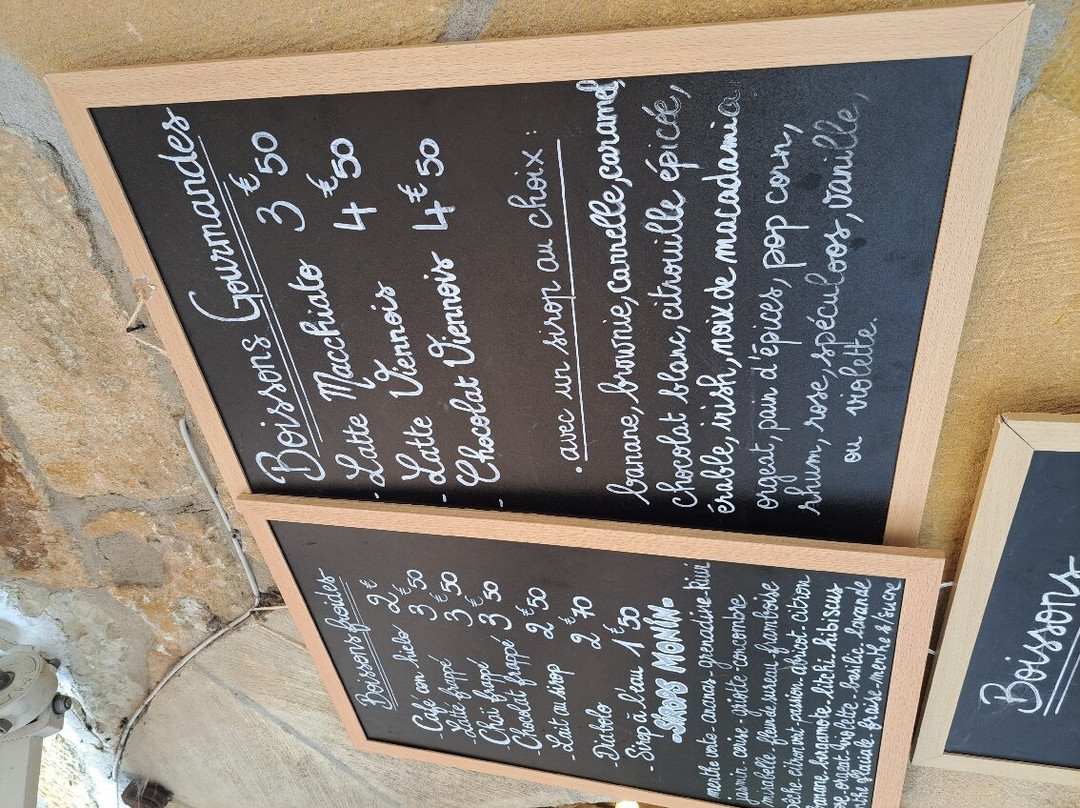 Boissons Gourmandes
- Latte Macchiato 3€50
- Latte Viennois 4€50
- Chocolat Viennois 4€50
• avec un sirop au choix :
banane, brownie, cannelle, caramel,
chocolat blanc, citrouille épicée,
érable, irish, noix de macadamia
orgeat, pain d'épices, pop corn,
rhum, rose, spéculoos, vanille,
ou violette.
Boissons froides
Café con hielo 2€
- Latte frappé 3€50
Chaï frappé 3€50
Chocolat frappé 3€50
- Lait au sirop 2€50
- Diabolo 2€70
- Sirop à l'eau 1€50
SIROPS MONIN
menthe verte - ananas - grenadine - kiwi
jasmin - cerise - griotte - concombre
mirabelle - fleur de sureau - framboise
pêche - citron vert - passion - abricot - citron
banane - bergamote - litchi - hibiscus
orgeat - violette - basilic - lavande
glaciale - fraise - menthe s/sucre
Boissons